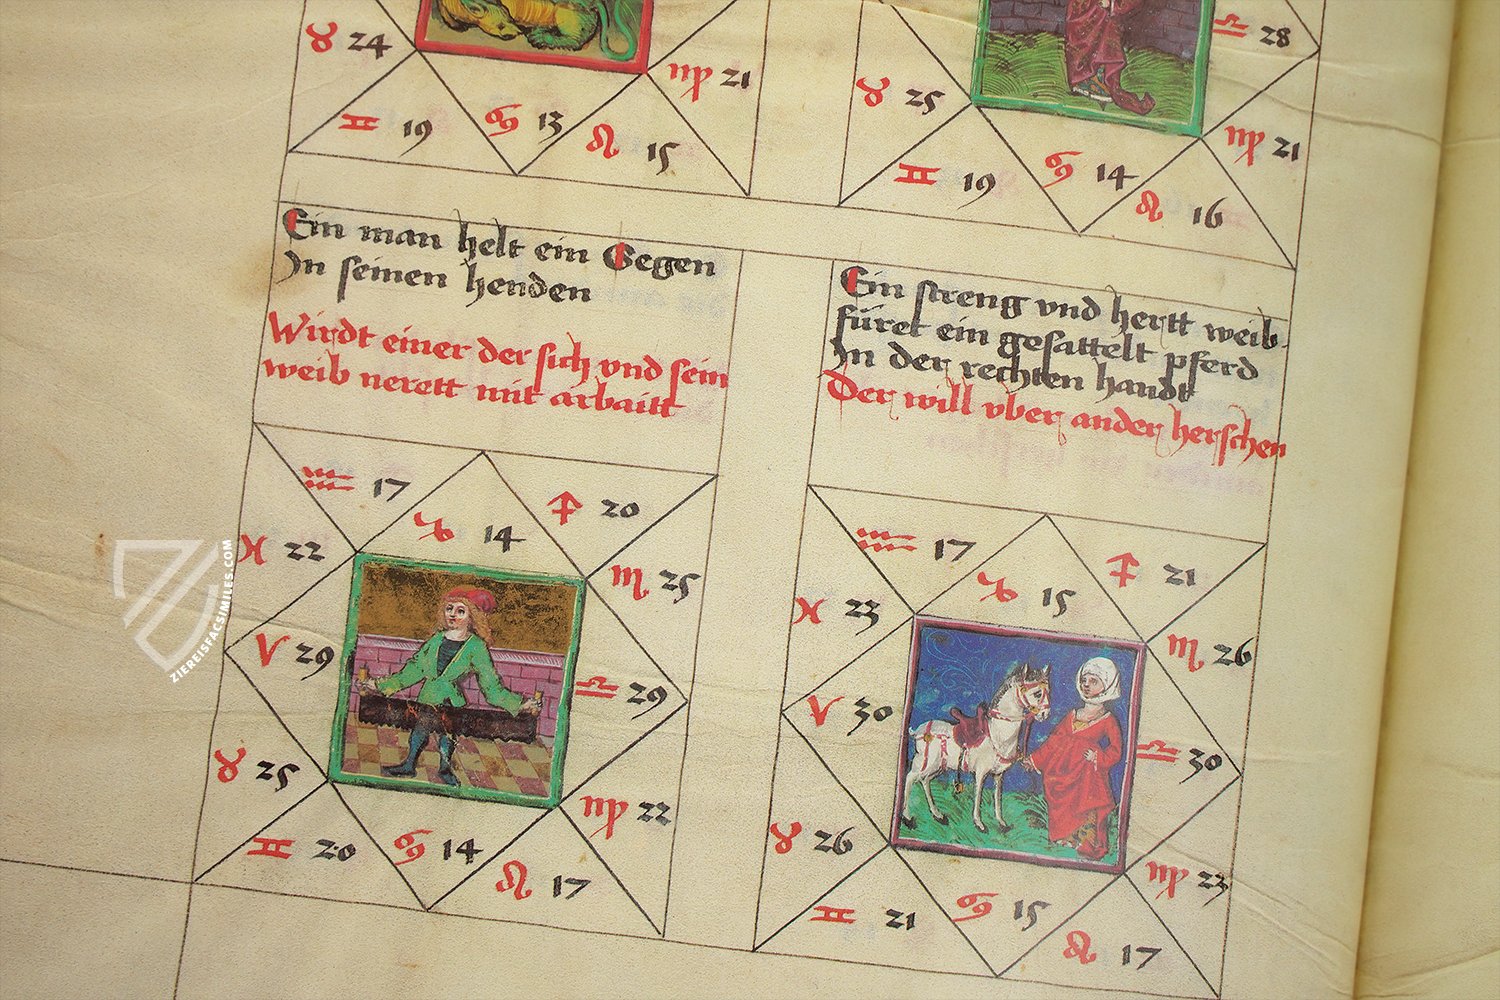 ♉ 24
♊ 19
♋ 13
♌ 15
♍ 21
♎ 28
♉ 25
♊ 19
♋ 14
♌ 16
♍ 21
Ein man helt ein Segen
In seinen henden
Wirdt einer der sich vnd sein
weib nerett mit arbaitt
♒ 17
♑ 14
♐ 20
♓ 22
♏ 25
♈ 29
♎ 29
♉ 25
♍ 22
♊ 20
♋ 14
♌ 17
Ein streng vnd hertt weib
füret ein gesattelt pferd
In der rechten handt
Der will vber ander herschen
♒ 17
♑ 15
♐ 21
♓ 23
♏ 26
♈ 30
♎ 30
♉ 26
♍ 23
♊ 21
♋ 15
♌ 17
ZIEREISFACSIMILES.COM